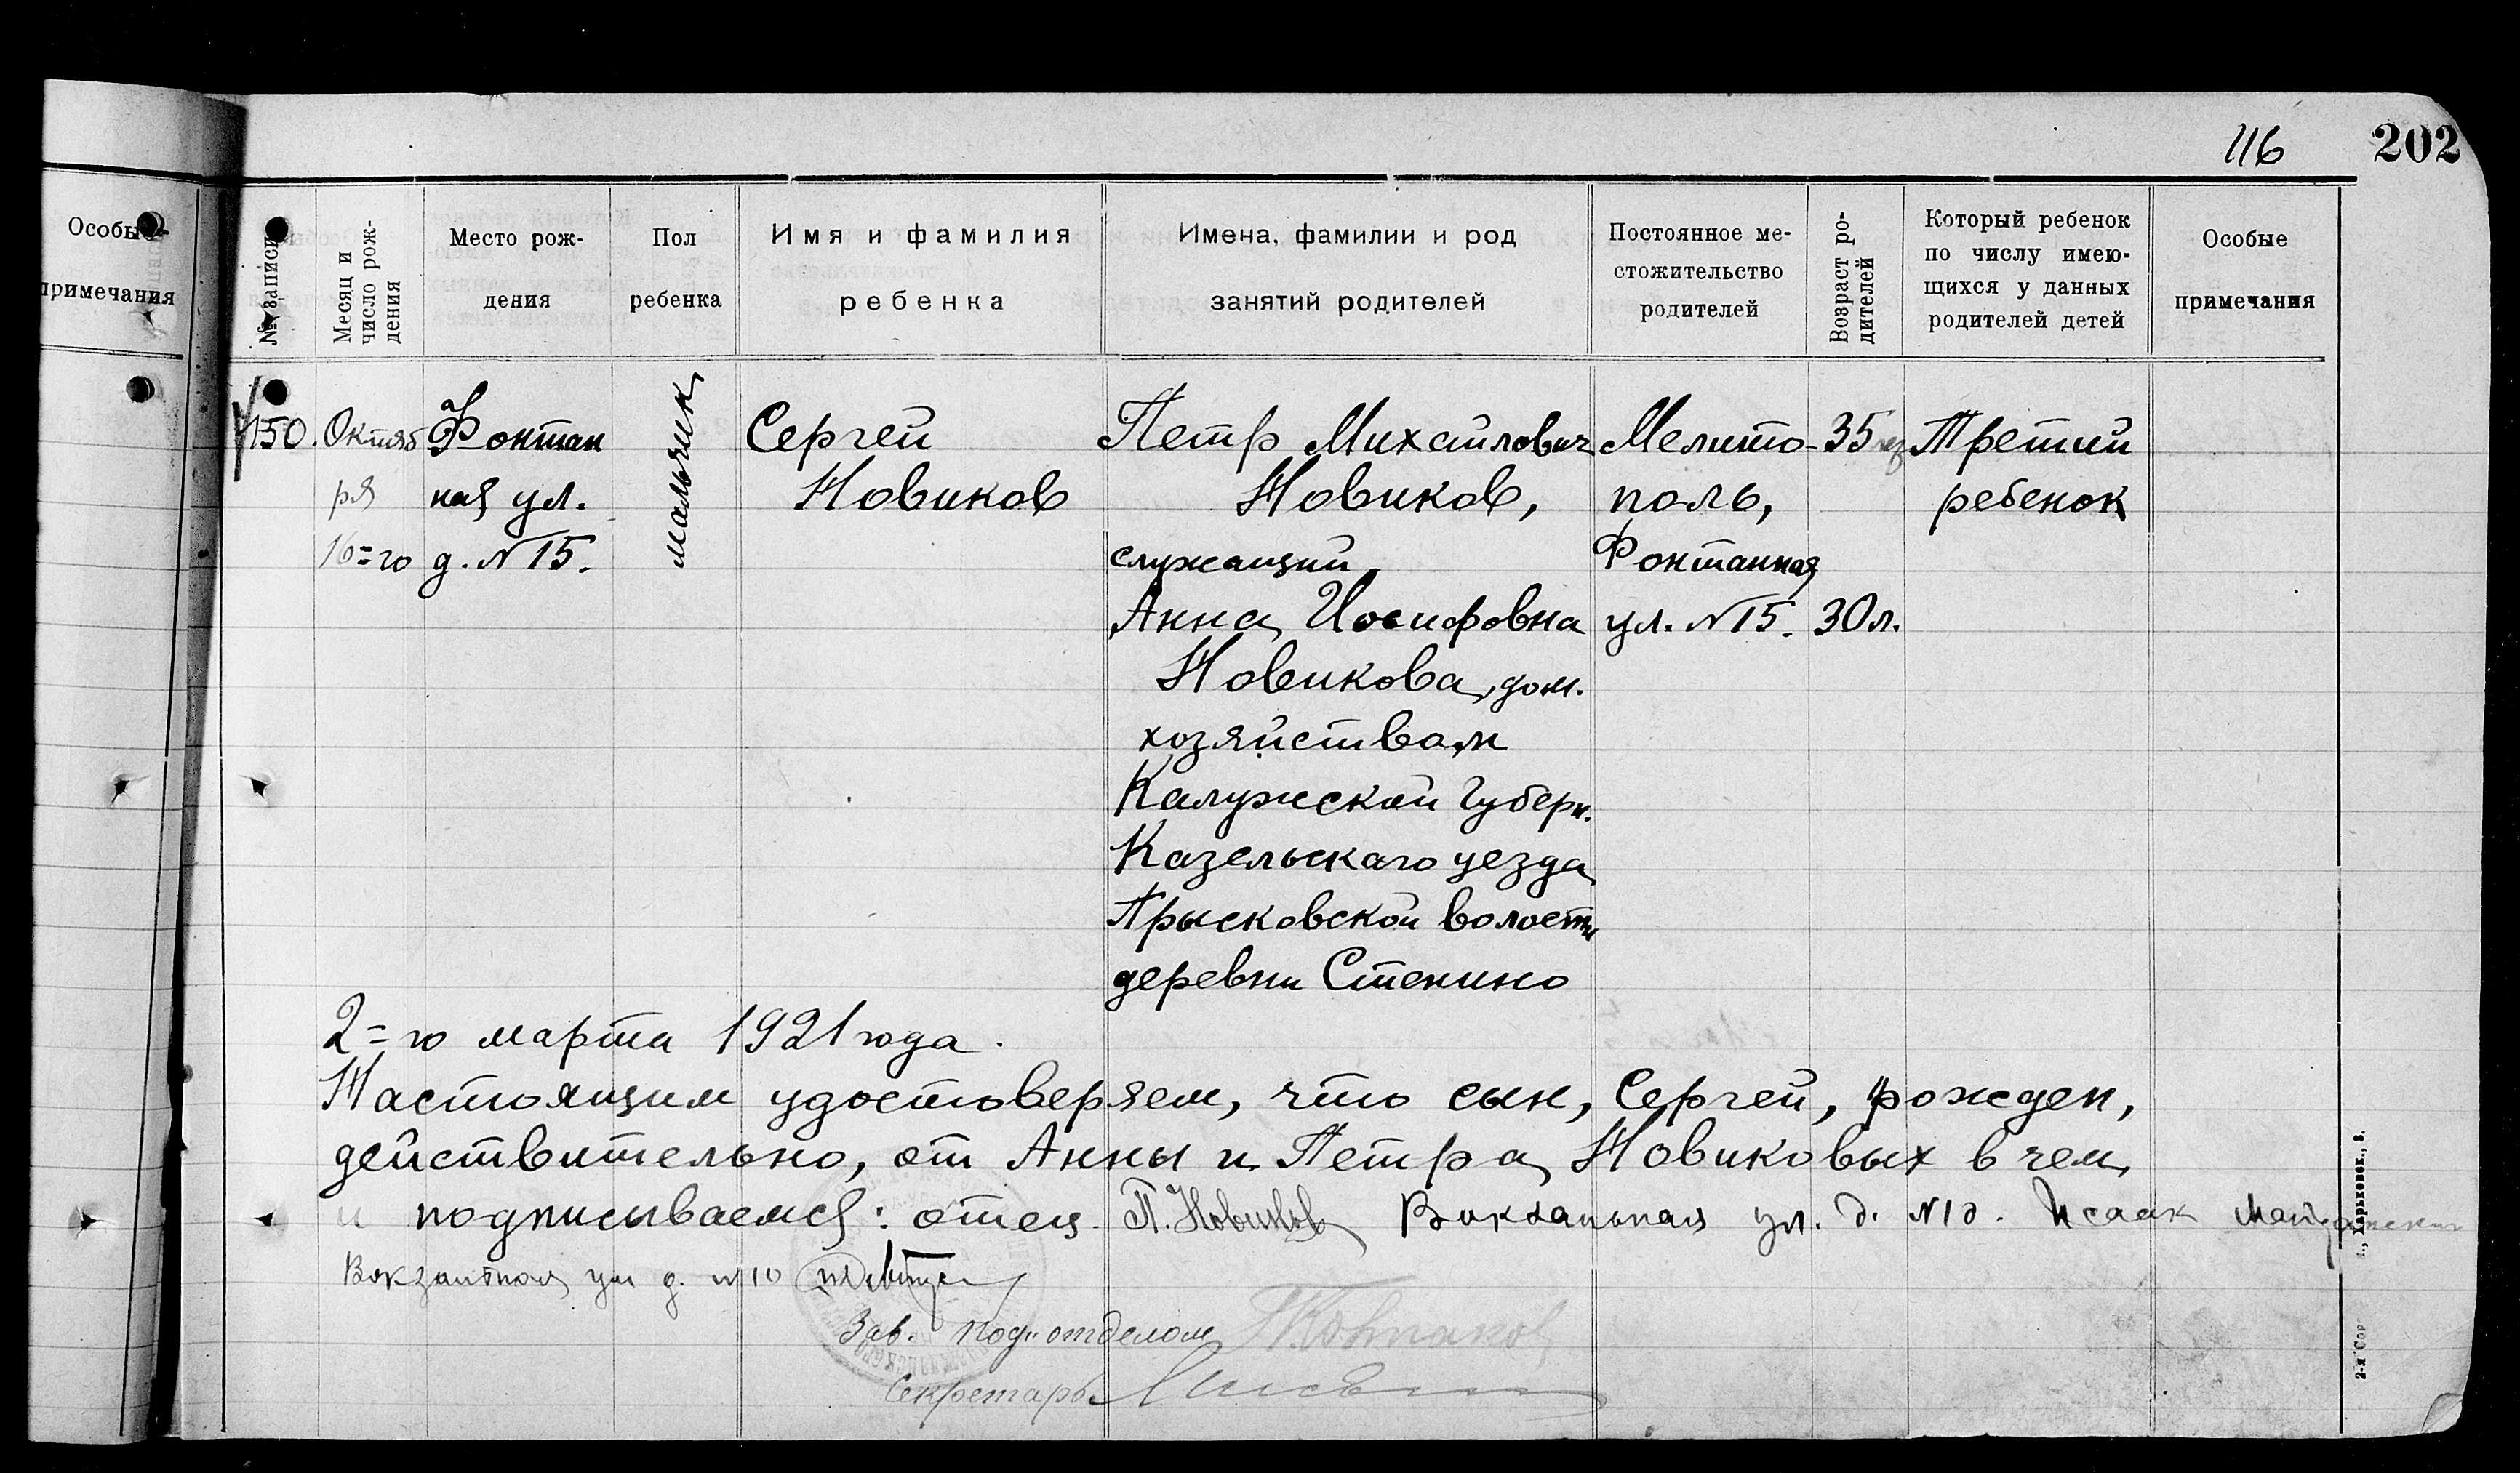 116 202
Особые
примечания
№ записи
Месяц и
число рож-
дения
Место рож-
дения
Пол
ребенка
Имя и фамилия
ребенка
Имена, фамилии и род
занятий родителей
Постоянное ме-
стожительство
родителей
Возраст ро-
дителей
Который ребенок
по числу имею-
щихся у данных
родителей детей
Особые
примечания
150.
Октяб
ря
16=го
Фонтан
ная ул.
д. №15.
мальчик
Сергей
Новиков
Петр Михайлович
Новиков,
служащий,
Анна Иосифовна
Новикова, дом.
хозяйствам
Калужской Губерн.
Казельскаго уезда
Прысковской волости
деревни Стенино
Мелито-
поль,
Фонтанная
ул. №15.
35
30л.
Третий
ребенок
2=го марта 1921 года.
Настоящим удостоверяем, что сын, Сергей, рожден,
действительно, от Анны и Петра Новиковых в чем
и подписываемся: отец. П. Новиков Вокзальная ул. д. №10. Исаак
Вокзальная ул д. №10
Зав. под'отделом
Секретарь
Харьковск., 3.
2-я